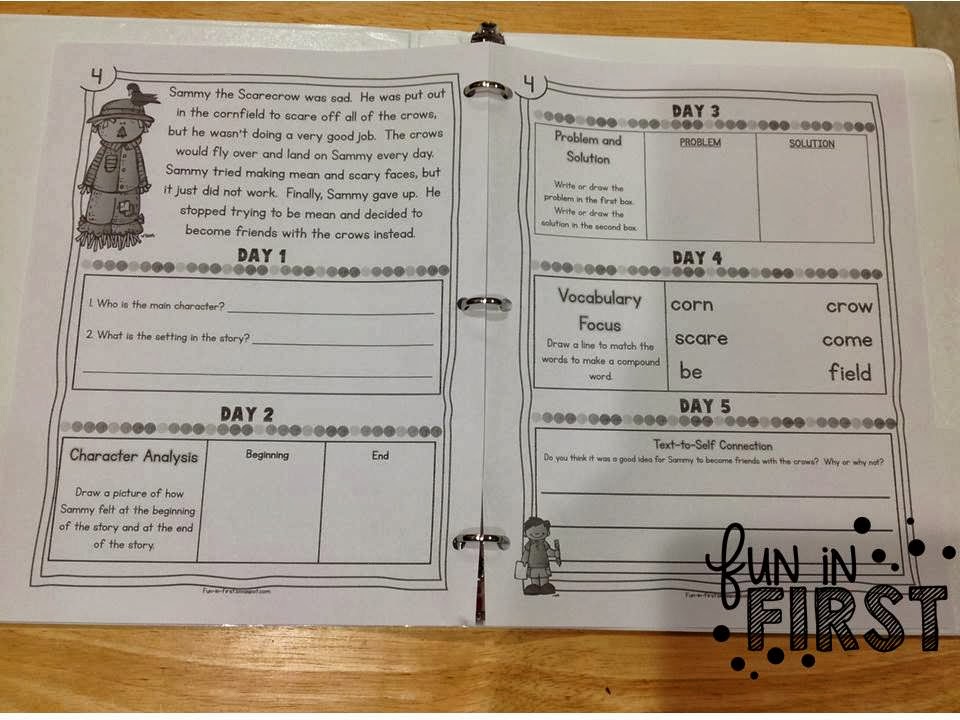 4
Sammy the Scarecrow was sad. He was put out
in the cornfield to scare off all of the crows,
but he wasn't doing a very good job. The crows
would fly over and land on Sammy every day.
Sammy tried making mean and scary faces, but
it just did not work. Finally, Sammy gave up. He
stopped trying to be mean and decided to
become friends with the crows instead.
DAY 1
1. Who is the main character?
2. What is the setting in the story?
DAY 2
Character Analysis
Draw a picture of how
Sammy felt at the beginning
of the story and at the end
of the story.
Beginning
End
fun-in-first.blogspot.com
4
DAY 3
Problem and
Solution
Write or draw the
problem in the first box.
Write or draw the
solution in the second box.
PROBLEM
SOLUTION
DAY 4
Vocabulary
Focus
Draw a line to match the
words to make a compound
word.
corn crow
scare come
be field
DAY 5
Text-to-Self Connection
Do you think it was a good idea for Sammy to become friends with the crows? Why or why not?
fun in
FIRST